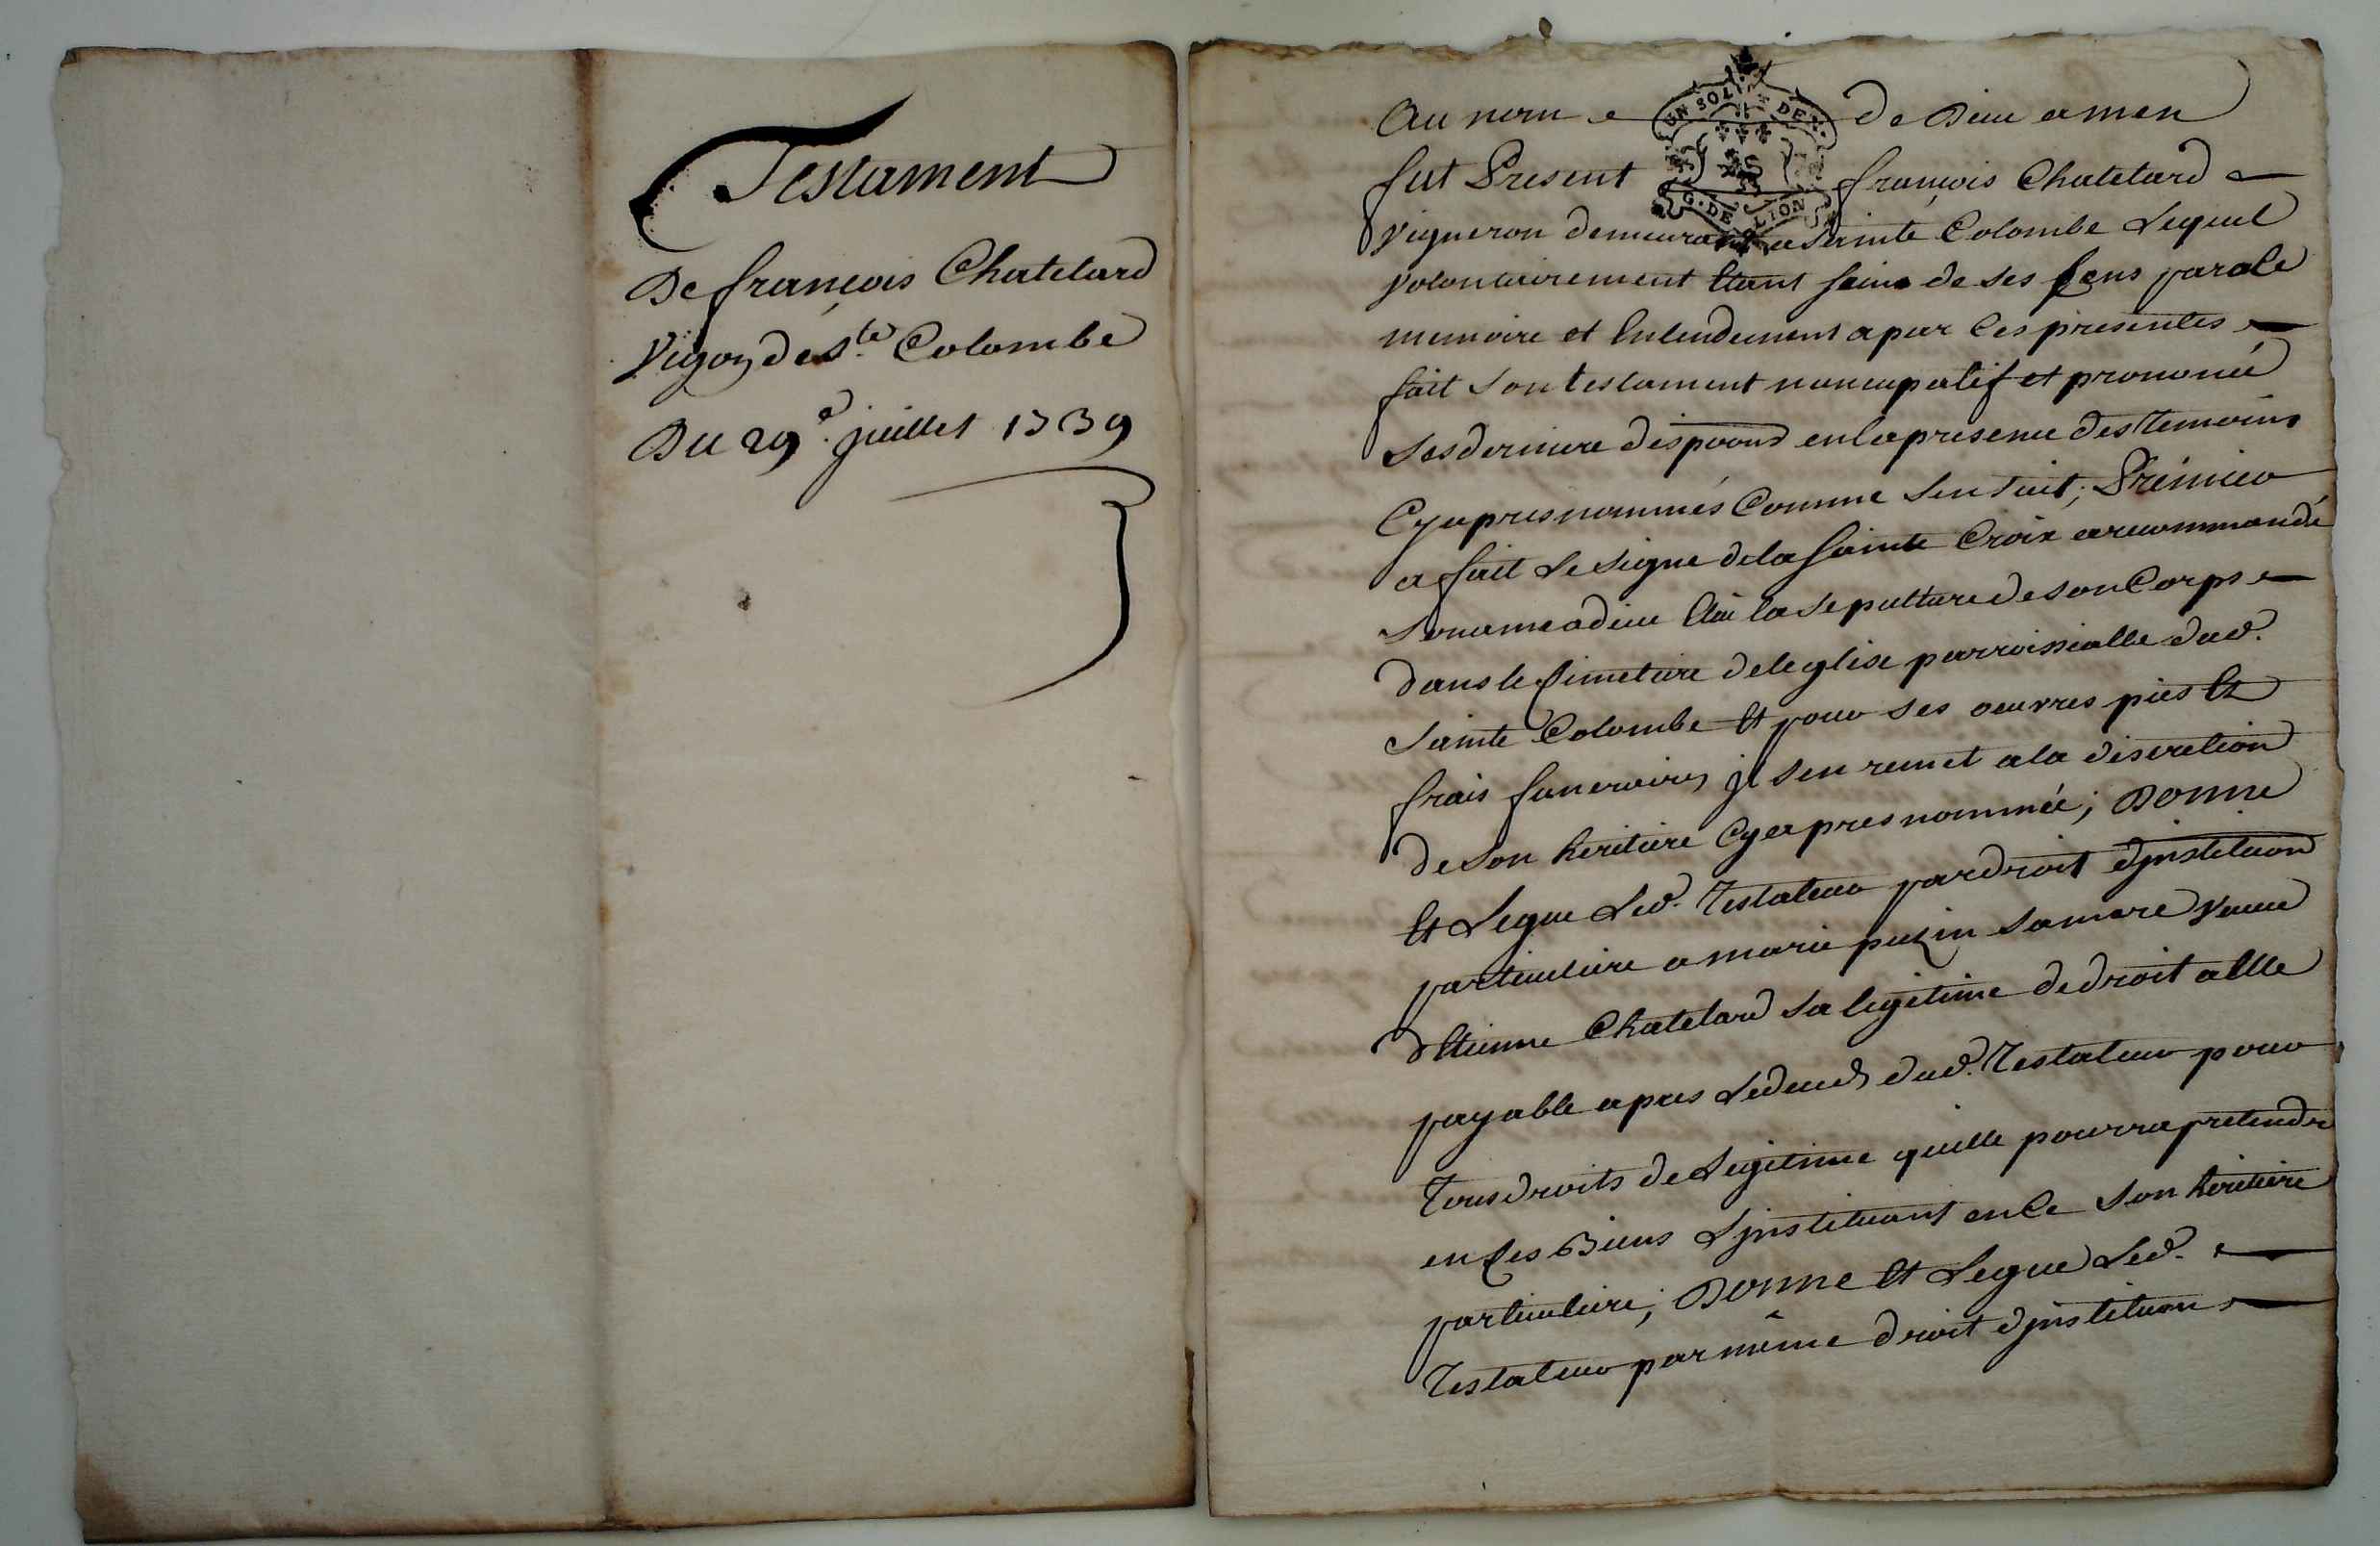 Testament
De françois Chatelard
Vigon de Ste Colombe
Du 29e juillet 1739
UN SOL
DEX.
G. DE LION
Au nom de Dieu amen
fut Present françois Chatelard
vigneron demeurant a Sainte Colombe Lequel
volontairement Etant sain de ses sens parole
memoire et Entendement a par Ces presentes
fait son testament nuncupatif et prononcé
Ses derniere dispoons en la presence des Temoins
Cy apres nommés Comme sen suit; Prémier
a fait le signe de la sainte Croix a recommandé
son ame a dieu Elû la sepulture de son Corps
dans le simetiere de leglise parroissialle dud.
Sainte Colombe Et pour ses oeuvres pies Et
frais funeraires jl sen remet a la discretion
de son heritiere Cy apres nommée; Donne
Et Legue Led. Testateur par droit djnstituon
particuliere a marie puzin sa mere veuve
dEtienne Chatelard sa legitime de droit a Elle
payable apres Le deceds dud. Testateur pour
Tous droits de Legitime quelle pourra pretendre
en ses Biens Ljnstituant en Ce son heritiere
particuliere; Donne Et Legue Led.
Testateur par même droit djnstituon